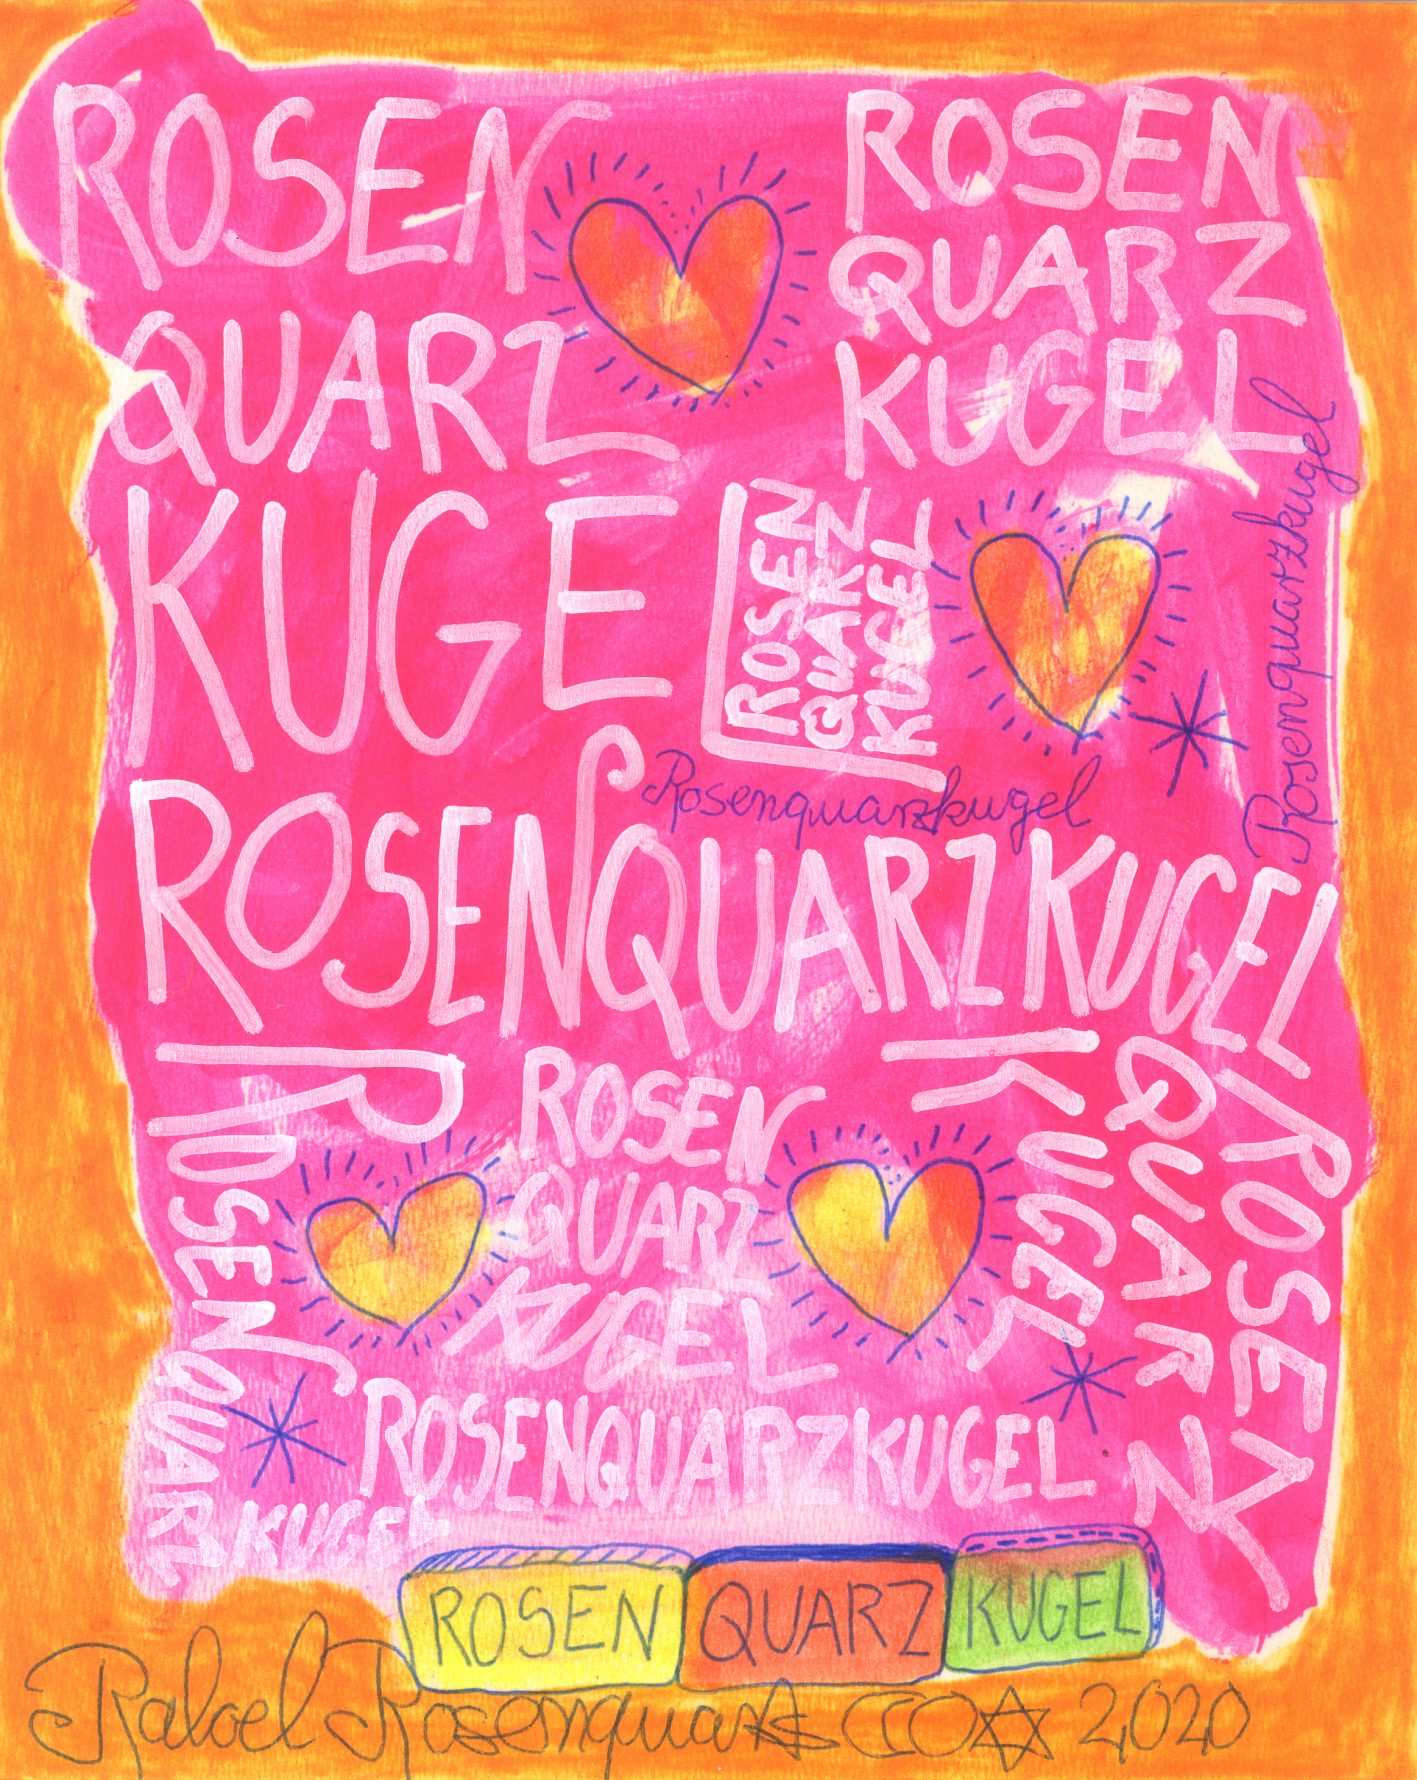 ROSEN
QUARZ
KUGEL
ROSEN
QUARZ
KUGEL
ROSEN
QUARZ
KUGEL
Rosenquarzkugel
Rosenquarzkugel
ROSENQUARZKUGEL
ROSEN
QUARZ
KUGEL
ROSEN
QUARZ
KUGEL
ROSEN
QUARZ
KUGEL
ROSENQUARZKUGEL
ROSEN QUARZ KUGEL
2020